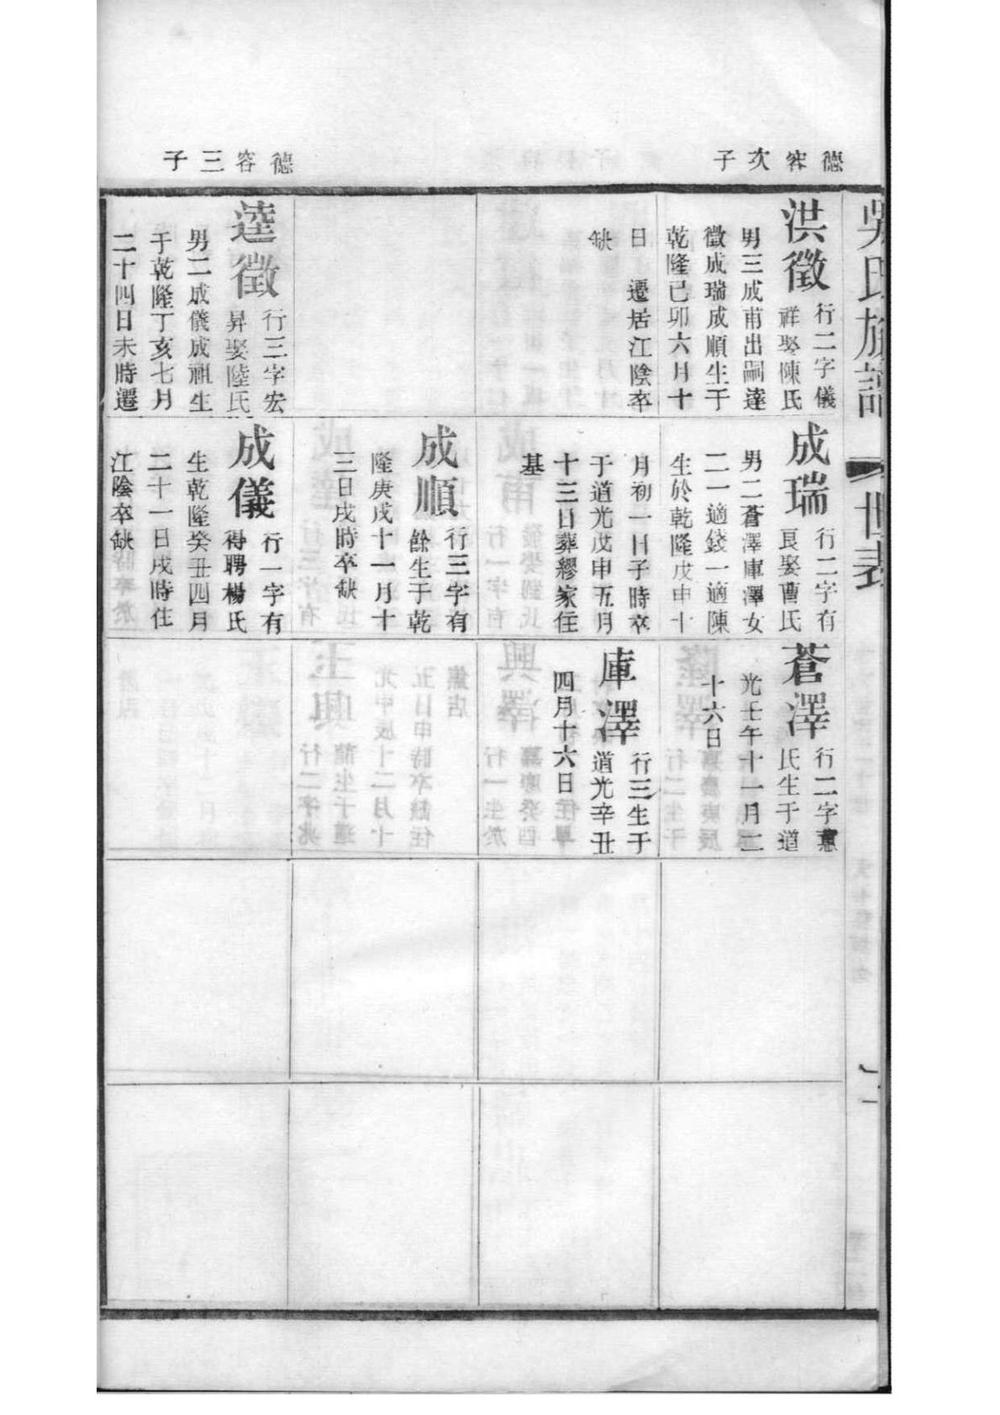 吳氏族譜
世表
德容次子
洪徵
行二字儀
祥娶陳氏
男三成甫出嗣達
徵成瑞成順生于
乾隆己卯六月十
日遷居江陰卒
缺
德容三子
達徵
行三字宏
昇娶陸氏
男二成儀成祖生
于乾隆丁亥七月
二十四日未時遷
成瑞
行二字有
良娶曹氏
男二蒼澤庫澤女
二一適錢一適陳
生於乾隆戊申十
月初一日子時卒
于道光戊申五月
十三日葬繆家住
基
成順
行三字有
餘生于乾
隆庚戌十一月十
三日戌時卒缺
成儀
行一字有
得聘楊氏
生乾隆癸丑四月
二十一日戌時住
江陰卒缺
蒼澤
行二字蕙
氏生于道
光壬午十一月二
十六日
庫澤
行三生于
道光辛丑
四月十六日